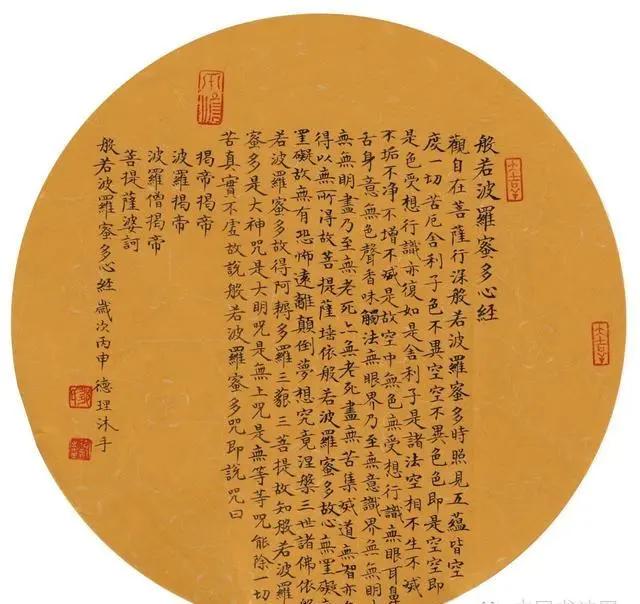 般若波羅蜜多心經
觀自在菩薩行深般若波羅蜜多時照見五蘊皆空
度一切苦厄舍利子色不異空空不異色色即是空空即
是色受想行識亦復如是舍利子是諸法空相不生不滅
不垢不净不增不減是故空中無色無受想行識無眼耳鼻
舌身意無色聲香味觸法無眼界乃至無意識界無無明
無無明盡乃至無老死亦無老死盡無苦集滅道無智亦
得以無所得故菩提薩埵依般若波羅蜜多故心無罣礙
罣礙故無有恐怖遠離顛倒夢想究竟涅槃三世諸佛依般
若波羅蜜多故得阿耨多羅三藐三菩提故知般若波羅
蜜多是大神咒是大明咒是無上咒是無等等咒能除一切
苦真實不虛故說般若波羅蜜多咒即說咒曰
揭帝揭帝
波羅揭帝
波羅僧揭帝
菩提薩婆訶
般若波羅蜜多心經歲次丙申德理沐手